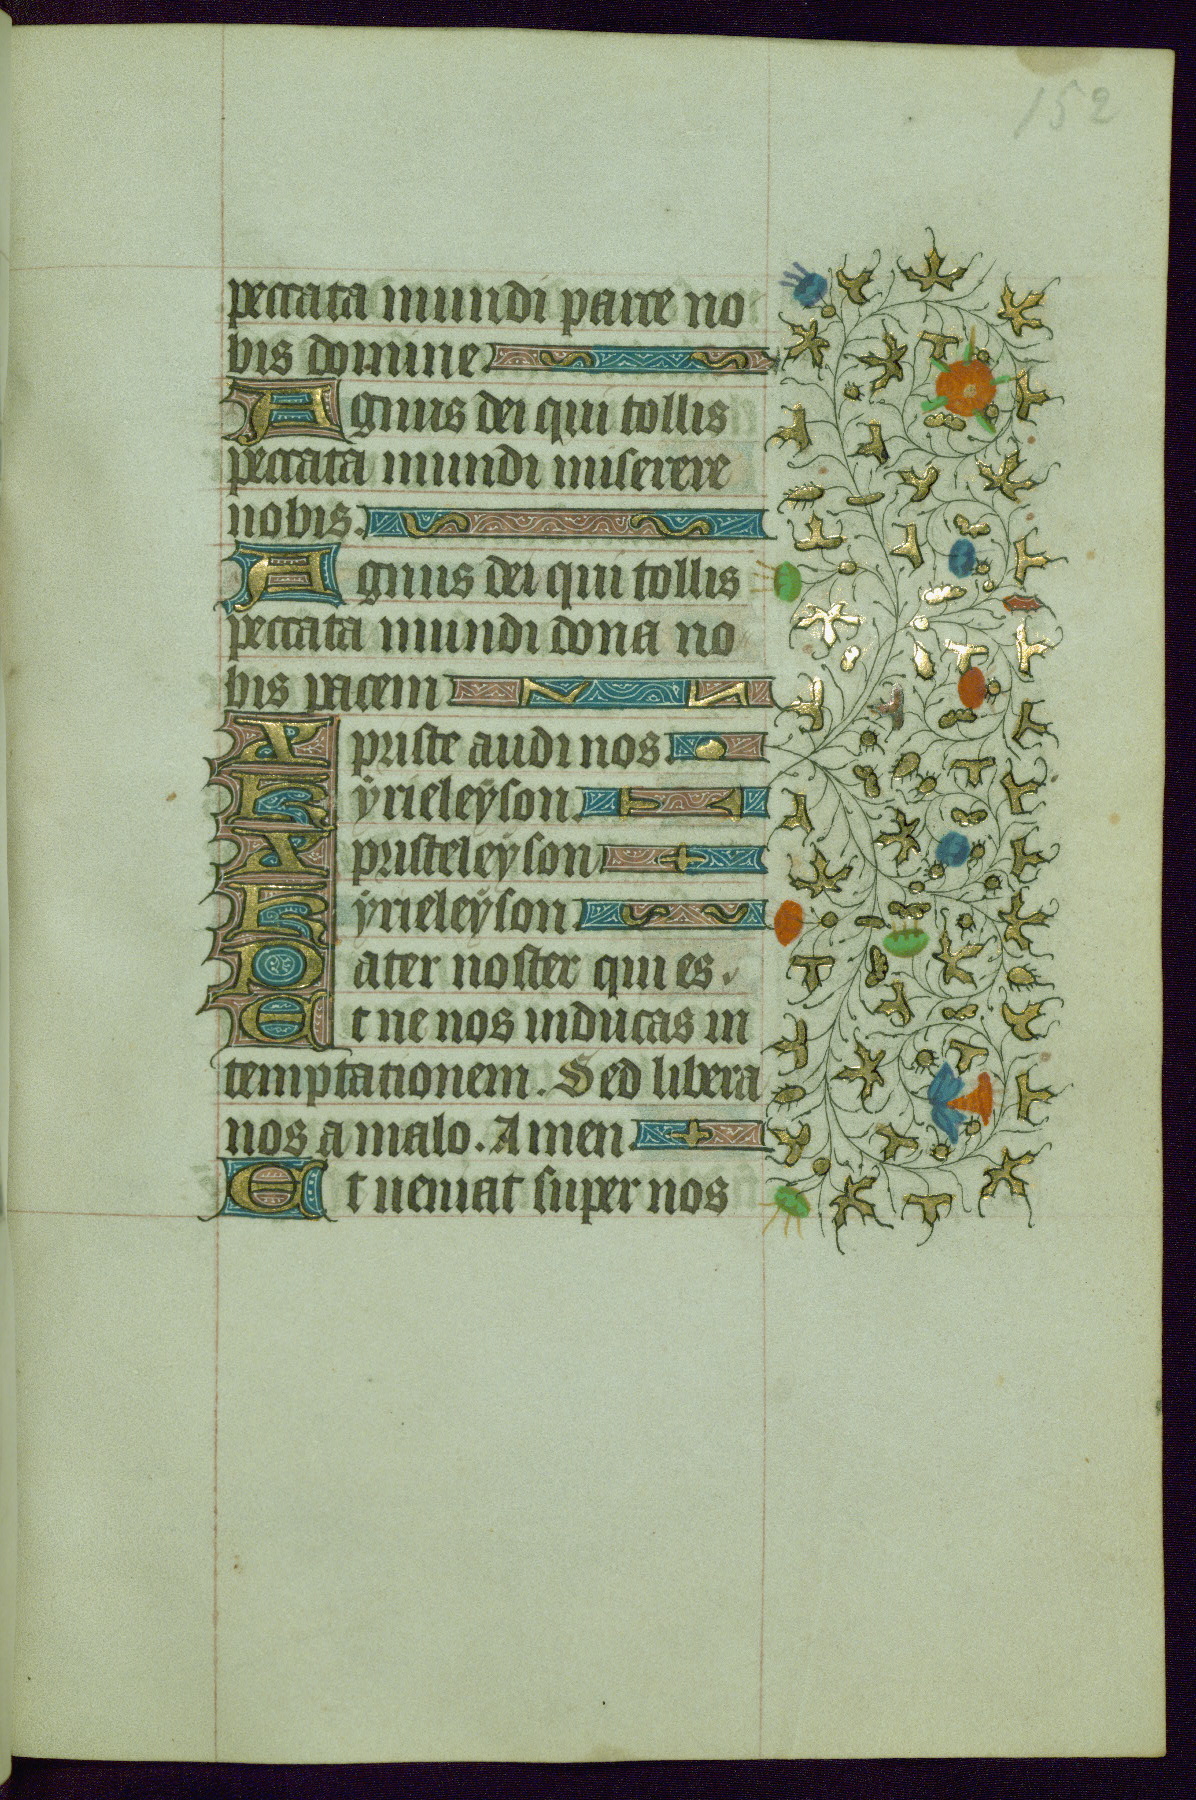 152
peccata mundi parce no
bis domine
Agnus dei qui tollis
peccata mundi miserere
nobis.
Agnus dei qui tollis
peccata mundi dona no
bis pacem
Xpriste audi nos
Kÿrieleÿson
Xpristeleÿson
Kÿrieleÿson
Pater noster qui es.
Et ne nos inducas in
temptationem. Sed libera
nos a malo. Amen
Et ueniat super nos